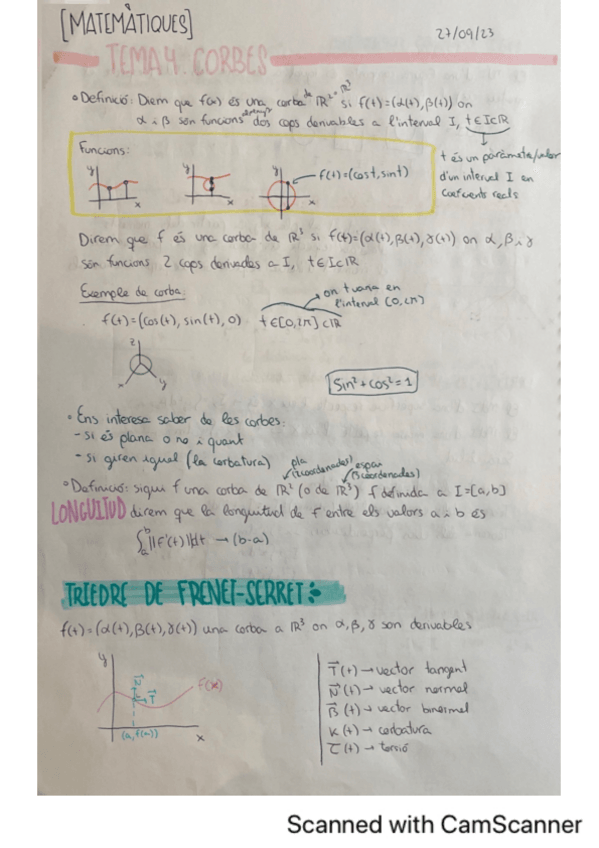 [MATEMÀTIQUES]
27/09/23
TEMA 4. CORBES
Definició: Diem que f(x) és una corba de ℝ² o ℝ³ si f(t)=(α(t),β(t)) on
α i β són funcions dos cops derivables a l'interval I, t∈I⊂ℝ
Funcions:
y
x
y
x
y
x
f(t)=(cost, sint)
t és un paràmetre/valor
d'un interval I en
coeficients reals
Direm que f és una corba de ℝ³ si f(t)=(α(t),β(t),γ(t)) on α,β i γ
són funcions 2 cops derivades a I, t∈I⊂ℝ
Exemple de corba:
on t varia en
l'interval [0,2π]
f(t)=(cos(t), sin(t), 0) t∈[0,2π]⊂ℝ
z
x
y
Sin²+cos²=1
Ens interesa saber de les corbes:
- si és plana o no i quant
- si giren igual (la corbatura)
pla
(2 coordenades)
espai
(3 coordenades)
Definició: sigui f una corba de ℝ² (o de ℝ³) f definida a I=[a,b]
LONGUITUD direm que la longuitud de f entre els valors a i b és
∫ₐᵇ||f'(t)||dt → (b-a)
TRIEDRE DE FRENET-SERRET:
f(t)=(α(t),β(t),γ(t)) una corba a ℝ³ on α,β,γ són derivables
y
N
T
f(x)
(a,f(a))
x
T(t) → vector tangent
N(t) → vector normal
B(t) → vector binormal
K(t) → corbatura
τ(t) → torsió
Scanned with CamScanner